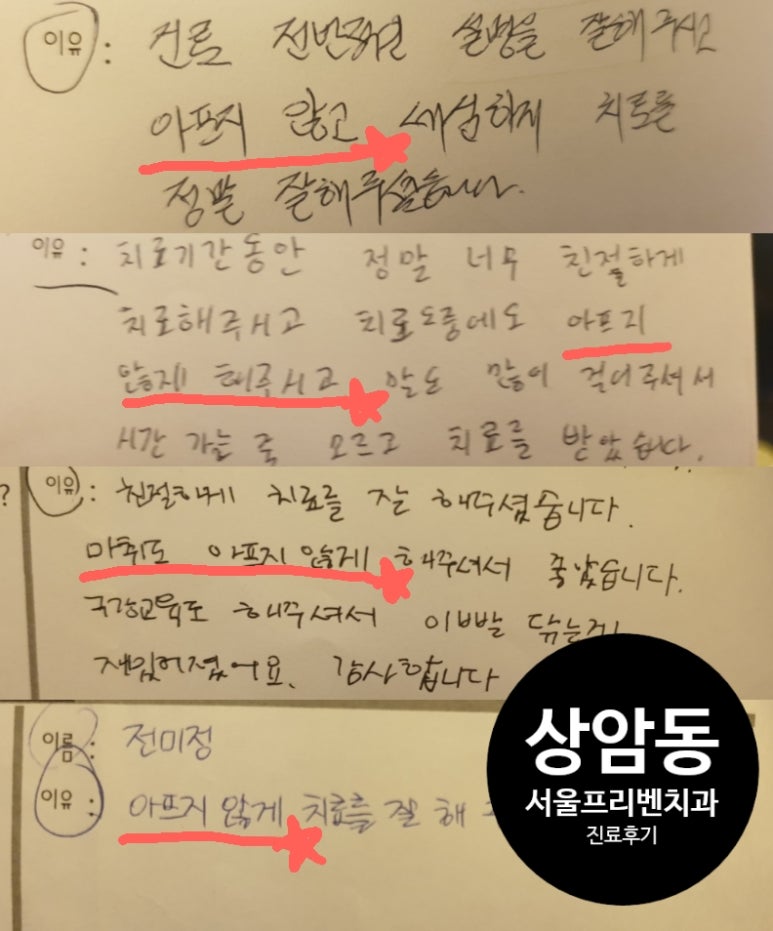 이유 : 진료 전반적인 설명을 잘해주시고
아프지 않고 세심하게 치료를
정말 잘해주셨습니다.
이유 : 치료기간동안 정말 너무 친절하게
치료해주시고 치료도중에도 아프지
않게 해주시고 말도 많이 걸어주셔서
시간 가는 줄 모르고 치료를 받았습니다.
?
이유 : 친절하게 치료를 잘 해주셨습니다.
마취도 아프지 않게 해주셔서 좋았습니다.
구강교육도 해주셔서 이빨 닦는게
재밌어졌어요. 감사합니다
이름 : 전미정
이유 : 아프지 않게 치료를 잘 해
상암동
서울프리벤치과
진료후기